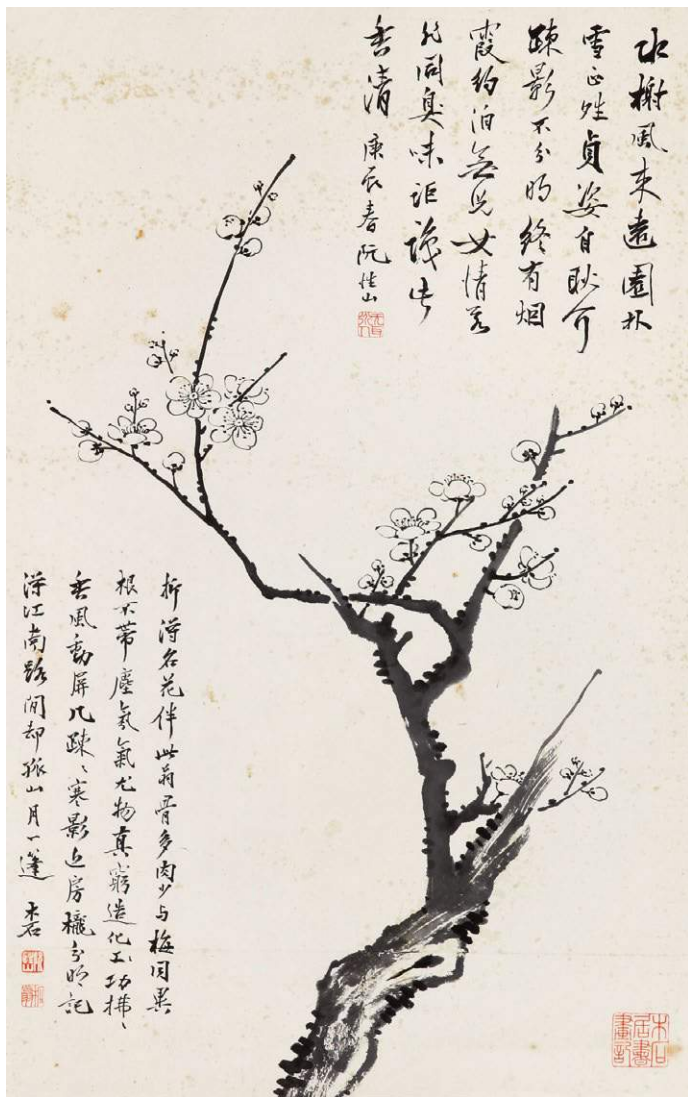 水榭風來遠園林
雪正晴貞姿自耿介
疎影不分明終有烟
霞約泊無兒女情若
非同臭味詎識此
香清 庚辰春阮性山
折得名花伴此翁骨多肉少与梅同異
根不帶塵氛氣尤物真窮造化工功拂〻
香風動屏几疎〻寒影近房櫳分明記
得江南路閒却孤山月一篷 木石
木石居書畫記